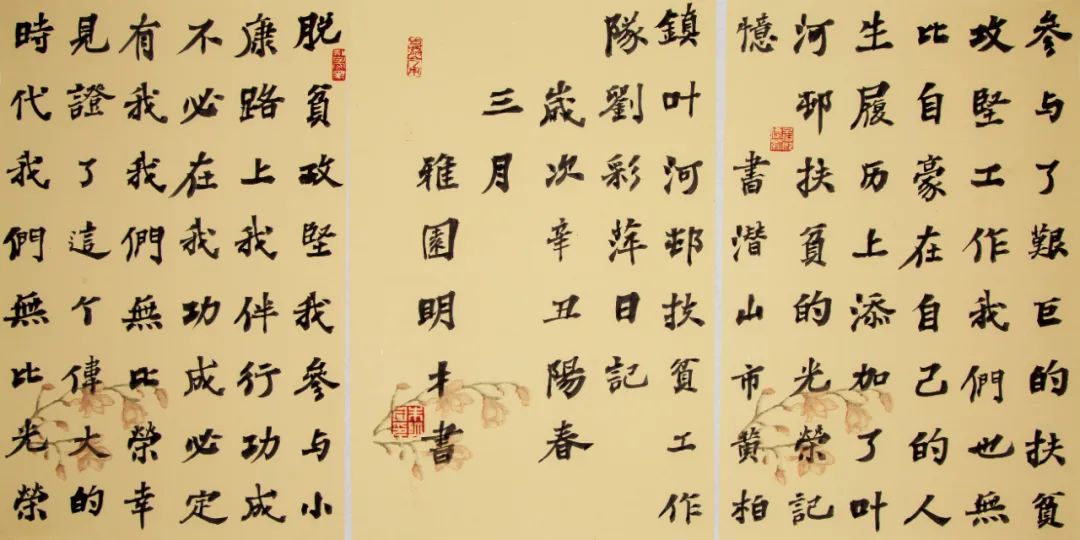 脱貧攻堅我參与小
康路上我伴行功成
不必在我功成必定
有我我們無比榮幸
見證了這个偉大的
時代我們無比光榮
參与了艱巨的扶貧
攻堅工作我們也無
比自豪在自己的人
生履历上添加了叶
河邨扶貧的光榮記
憶 書潛山市黄柏
鎮叶河邨扶貧工作
隊劉彩萍日記
歲次辛丑陽春
三月
雅園明才書